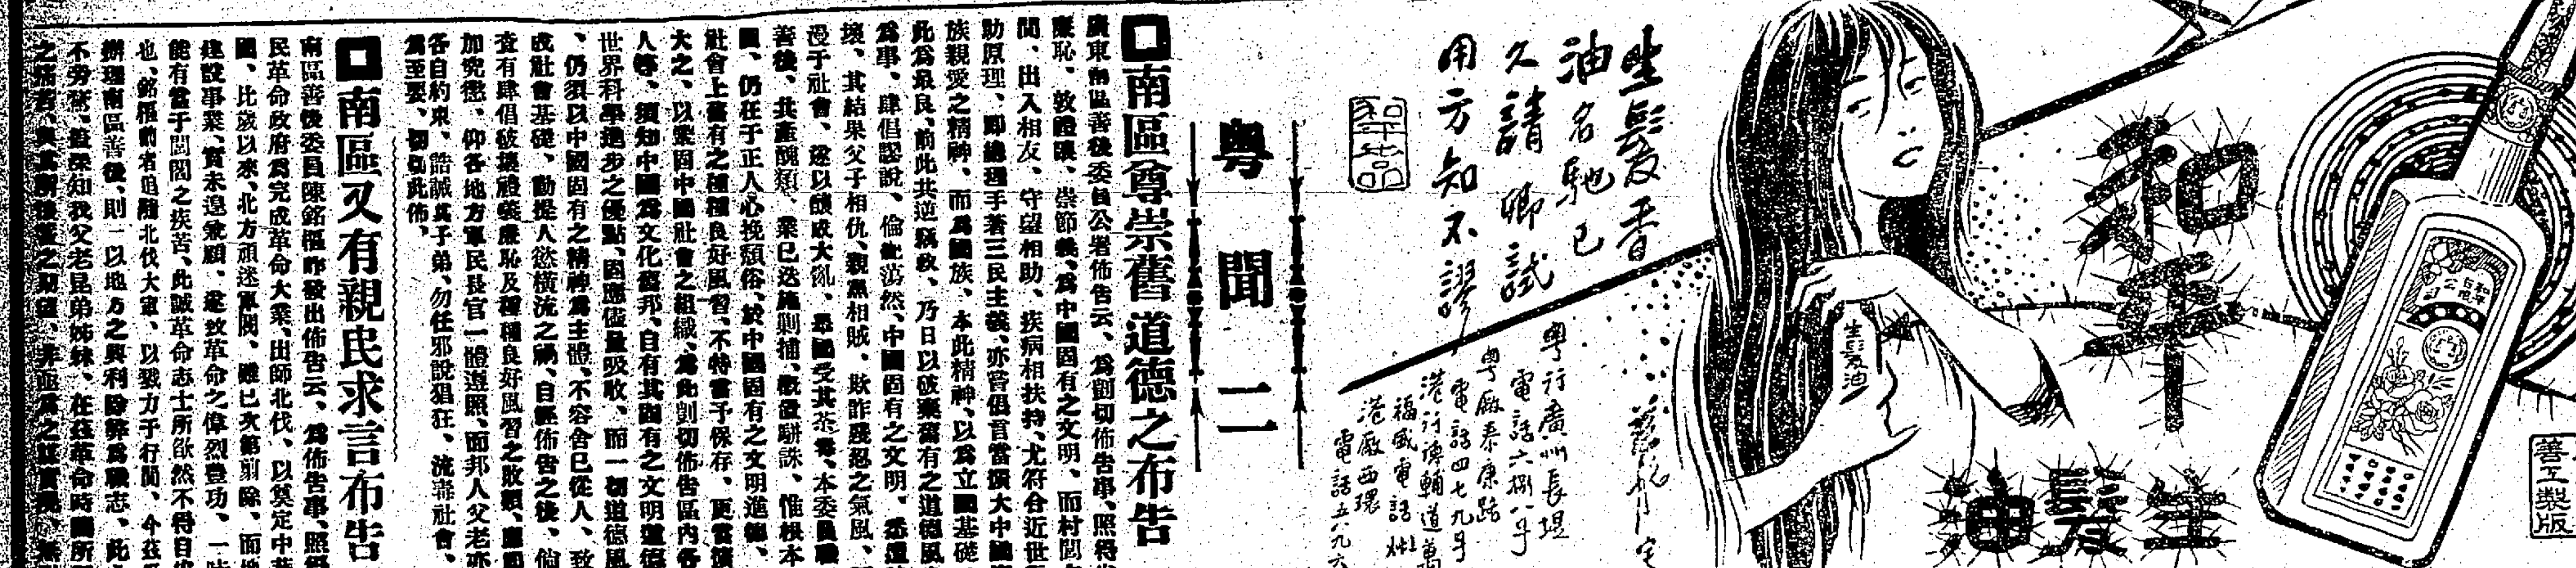 善工製版
和平
生髮油
生髮香
油名馳已
久請卿試
用方知不謬
和平出品
生髮油
粵行廣州長堤
電話六捌八号
粵廠泰康路
電話四七九号
港行德輔道
福威電話
港廠西環
電話五八九六
粵聞二
南區尊崇舊道德之布告
廣東南區善後委員公署佈告云、爲剴切佈告事、照得
廉恥、敦禮讓、崇節義、爲中國固有之文明、而村閭
間、出入相友、守望相助、疾病相扶持、尤符合近世
助原理、卽總理手著三民主義、亦嘗倡言當擴大中國
族親愛之精神、而爲國族、本此精神、以爲立國基礎
此爲最良、前此共逆竊政、乃日以破棄舊有之道德風
爲事、肆倡謬說、倫紀蕩然、中國固有之文明、悉遭
壞、其結果父子相仇、親黨相賊、欺詐殘忍之氣風、
漫于社會、遂以釀成大亂、舉國受其荼毒、本委員職
善後、共產醜類、業已迭施剿捕、概置駢誅、惟根本
圖、仍在于正人心挽頹俗、於中國固有之文明道德、
社會上舊有之種種良好風習、不特當予保存、更當擴
大之、以鞏固中國社會之組織、爲此剴切佈告區內各
人等、須知中國爲文化舊邦、自有其固有之文明道德
世界科學進步之優點、固應儘量吸收、而一切道德風
、仍須以中國固有之精神爲主體、不容舍己從人、致
戉社會基礎、動搖人慾橫流之禍、自經佈告之後、倘
查有肆倡破壞禮義廉恥及種種良好風習之敗類、應卽
加究懲、仰各地方軍民長官一體遵照、而邦人父老亦
各自約束、誥誡其子弟、勿任邪說猖狂、流毒社會、
爲至要、切切此佈、
南區又有親民求言布告
南區善後委員陳銘樞昨發出佈告云、爲佈告事、照得
民革命政府爲完成革命大業、出師北伐、以奠定中華
國、比歲以來、北方頑迷軍閥、雖已次第剪除、而
建設事業、實未遑兼顧、遂致革命之偉烈豐功、一時
能有當于閭閻之疾苦、此誠革命志士所歉然不得自
也、銘樞前者追隨北伐大軍、以戮力于行間、今茲
辦理南區善後、則一以地方之興利除弊爲職志、此
不勞, 並深知我父老昆弟姊妹、在茲革命時國所
之痛苦、與其對後之期望、